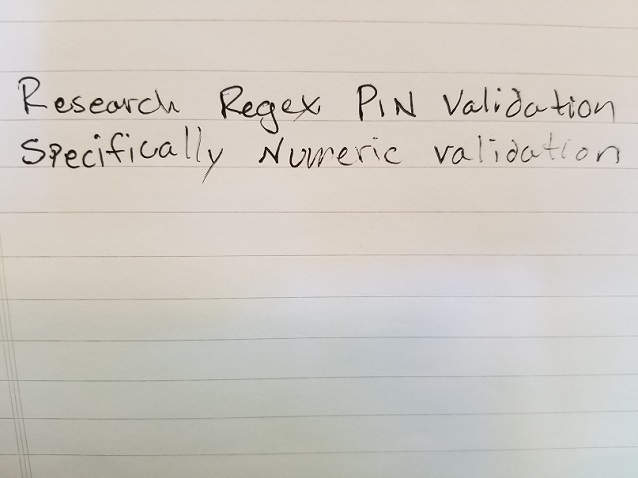 Research Regex PIN Validation
Specifically Numeric validation